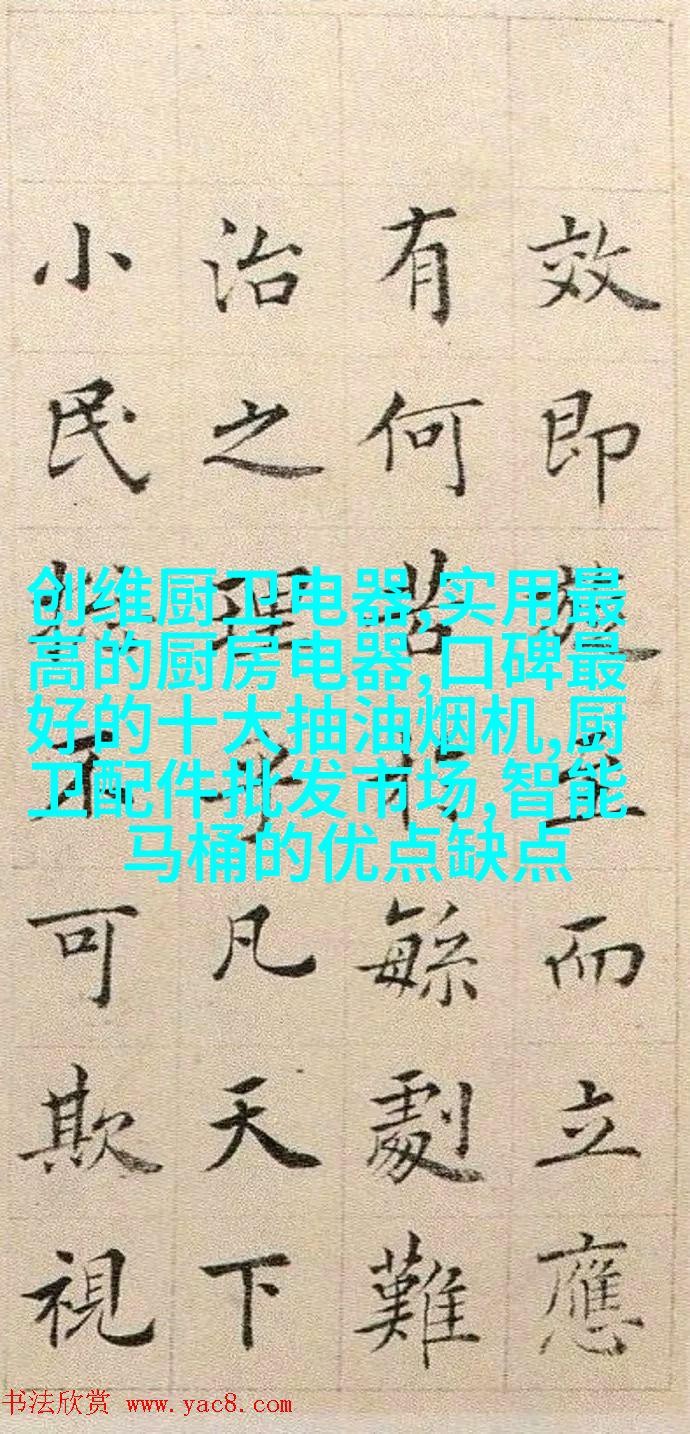 效即而立應
有何苦緐劇難
治之理凡天下
小民不可欺視
创维厨卫电器,实用最
高的厨房电器,口碑最
好的十大抽油烟机,厨
卫配件批发市场,智能
马桶的优点缺点
书法欣赏 www.yac8.com